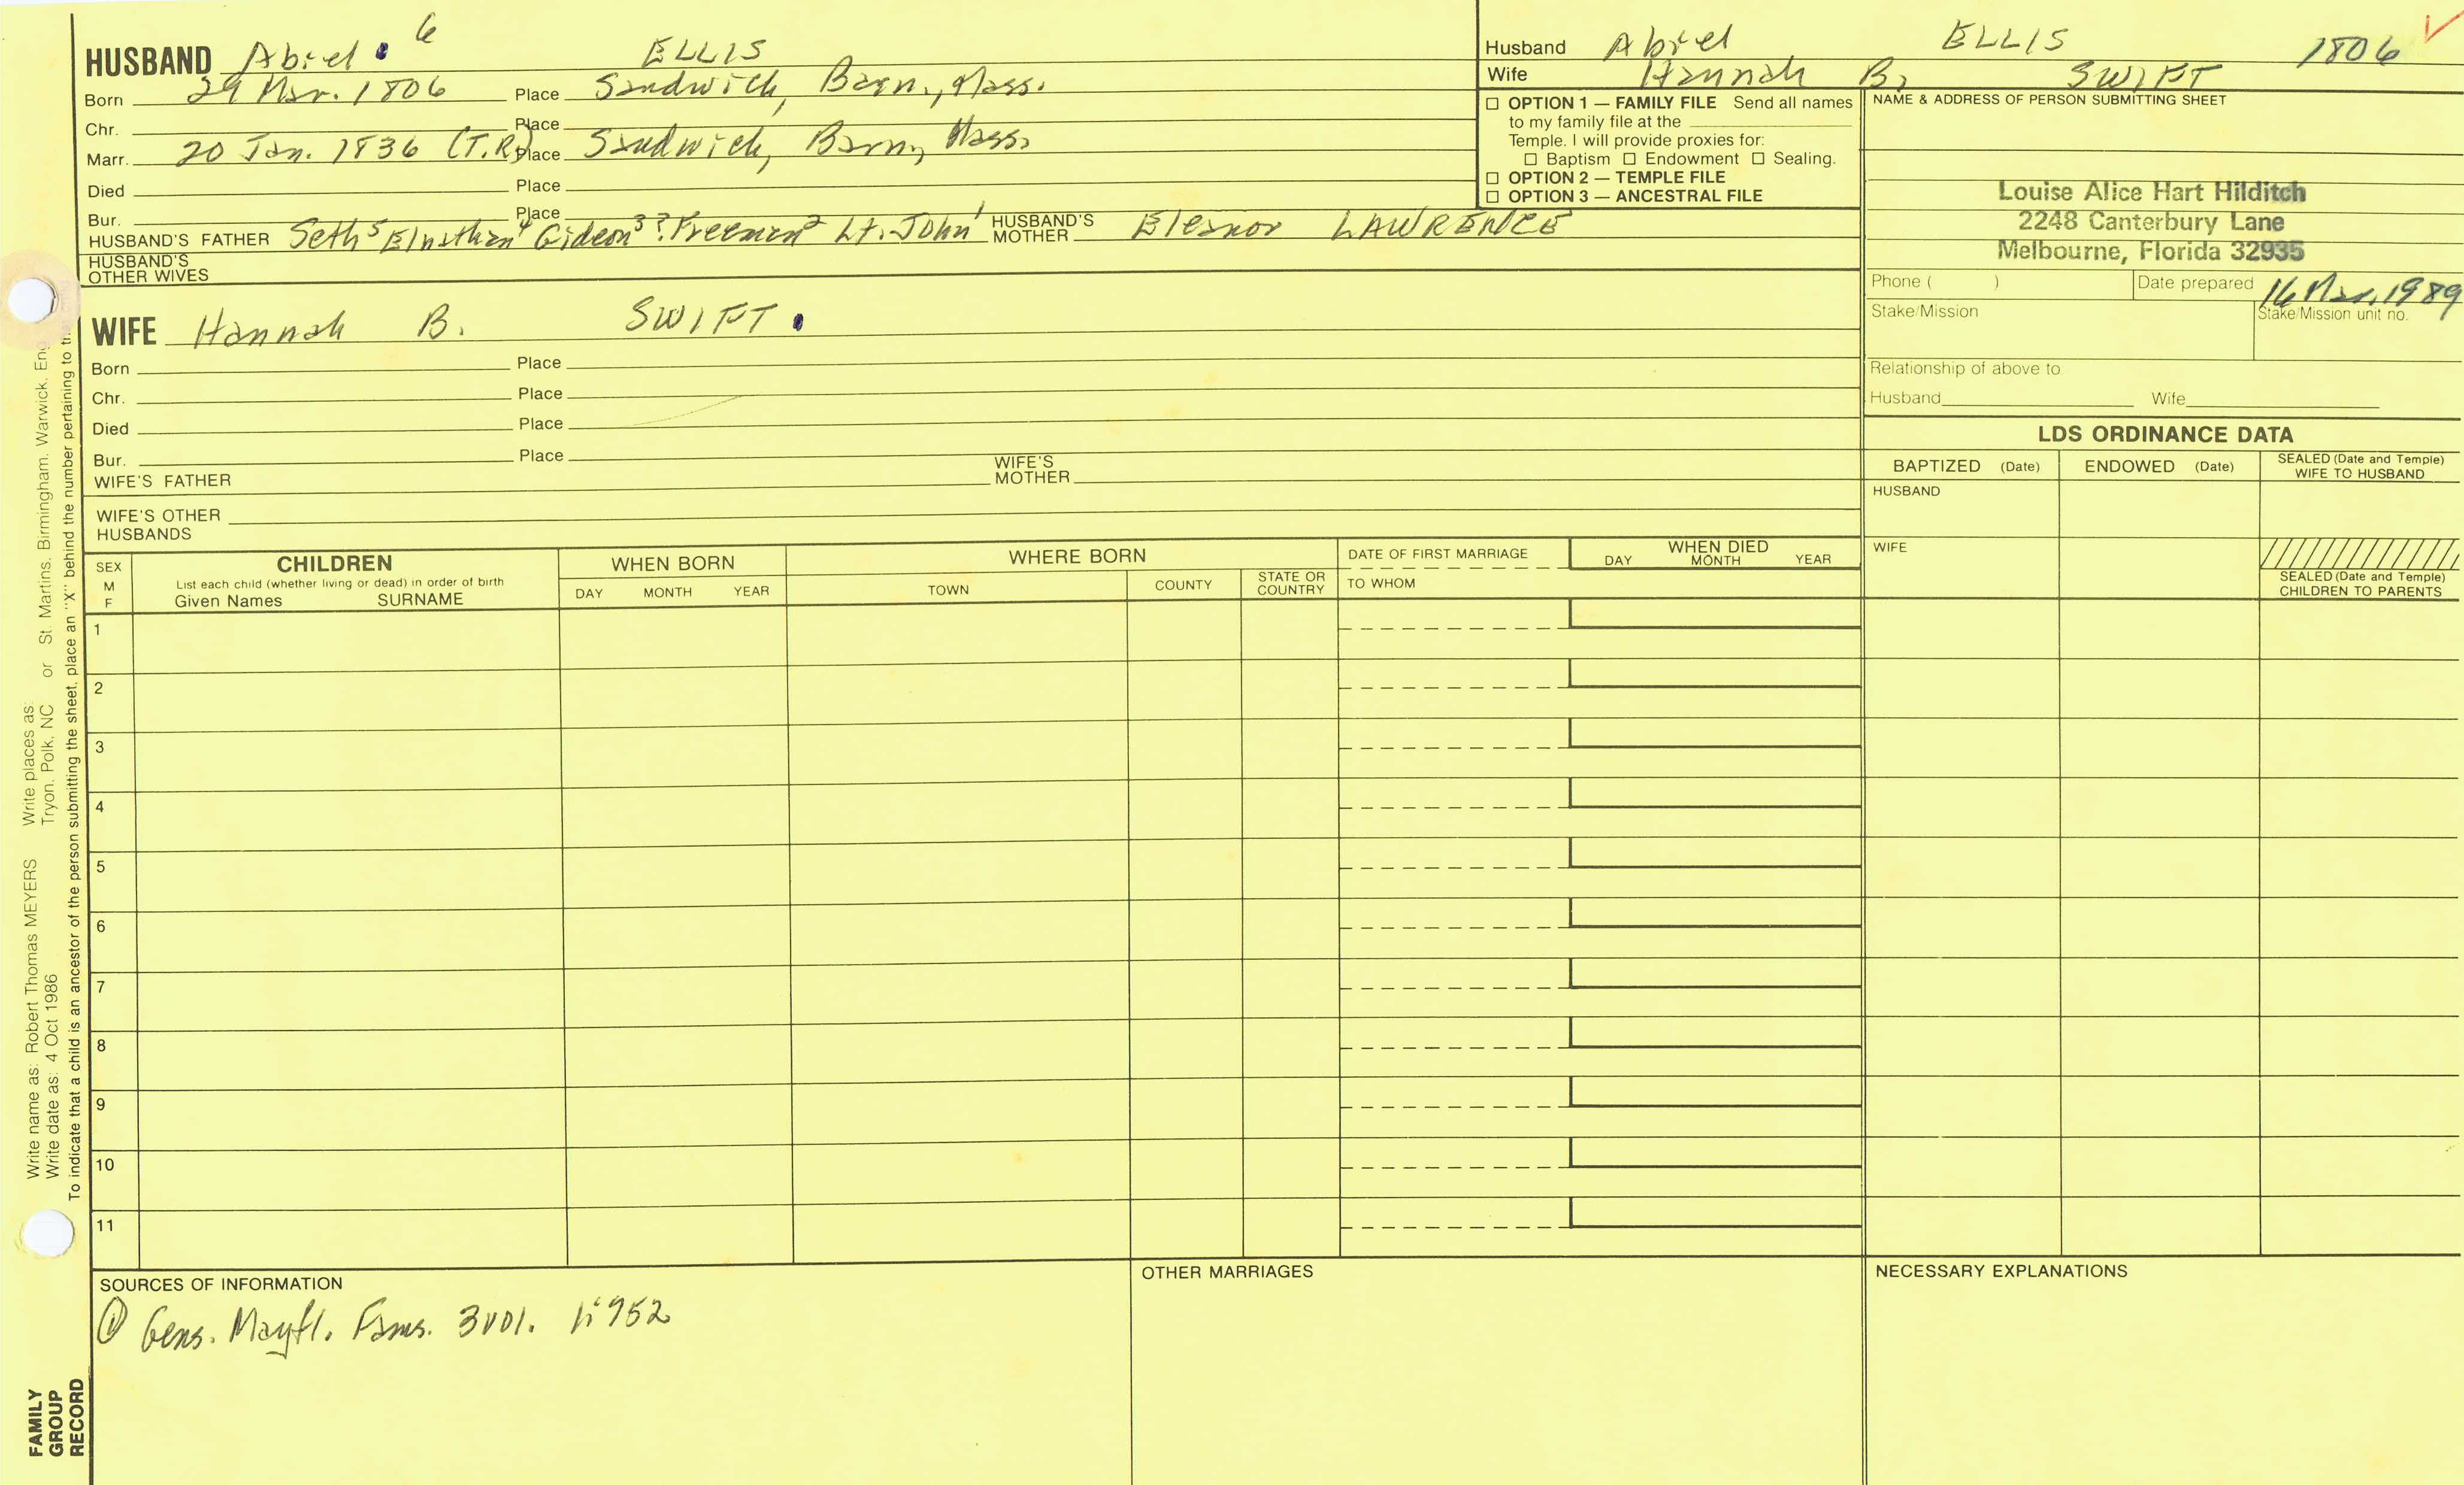 HUSBAND Abiel 6 ELLIS
Born 29 Mar. 1806 Place Sandwich, Barn., Mass.
Chr. Place
Marr. 20 Jan. 1836 (T.R.) Place Sandwich, Barn, Mass.
Died Place
Bur. Place
HUSBAND'S FATHER Seth⁵ Elnathan⁴ Gideon³ ? Freeman² Lt. John¹ HUSBAND'S MOTHER Eleanor LAWRENCE
HUSBAND'S OTHER WIVES
Husband Abiel ELLIS 1806
Wife Hannah B. SWIFT
☐ OPTION 1 — FAMILY FILE Send all names
to my family file at the
Temple. I will provide proxies for:
☐ Baptism ☐ Endowment ☐ Sealing.
☐ OPTION 2 — TEMPLE FILE
☐ OPTION 3 — ANCESTRAL FILE
NAME & ADDRESS OF PERSON SUBMITTING SHEET
Louise Alice Hart Hilditch
2248 Canterbury Lane
Melbourne, Florida 32935
Phone ( ) Date prepared 16 Mar. 1989
Stake/Mission Stake/Mission unit no.
Relationship of above to
Husband Wife
WIFE Hannah B. SWIFT
Born Place
Chr. Place
Died Place
Bur. Place
WIFE'S FATHER WIFE'S MOTHER
WIFE'S OTHER HUSBANDS
LDS ORDINANCE DATA
BAPTIZED (Date) ENDOWED (Date) SEALED (Date and Temple) WIFE TO HUSBAND
HUSBAND
WIFE
SEALED (Date and Temple) CHILDREN TO PARENTS
SEX M F
CHILDREN
List each child (whether living or dead) in order of birth
Given Names SURNAME
WHEN BORN
DAY MONTH YEAR
WHERE BORN
TOWN COUNTY STATE OR COUNTRY
DATE OF FIRST MARRIAGE
TO WHOM
WHEN DIED
DAY MONTH YEAR
1
2
3
4
5
6
7
8
9
10
11
SOURCES OF INFORMATION
① Gens. Mayfl. Fams. 3vol. 1:952
OTHER MARRIAGES
NECESSARY EXPLANATIONS
Write name as: Robert Thomas MEYERS Write places as:
Write date as: 4 Oct 1986 Tryon, Polk, NC or St. Martins, Birmingham, Warwick, Eng
To indicate that a child is an ancestor of the person submitting the sheet, place an "X" behind the number pertaining to
FAMILY
GROUP
RECORD